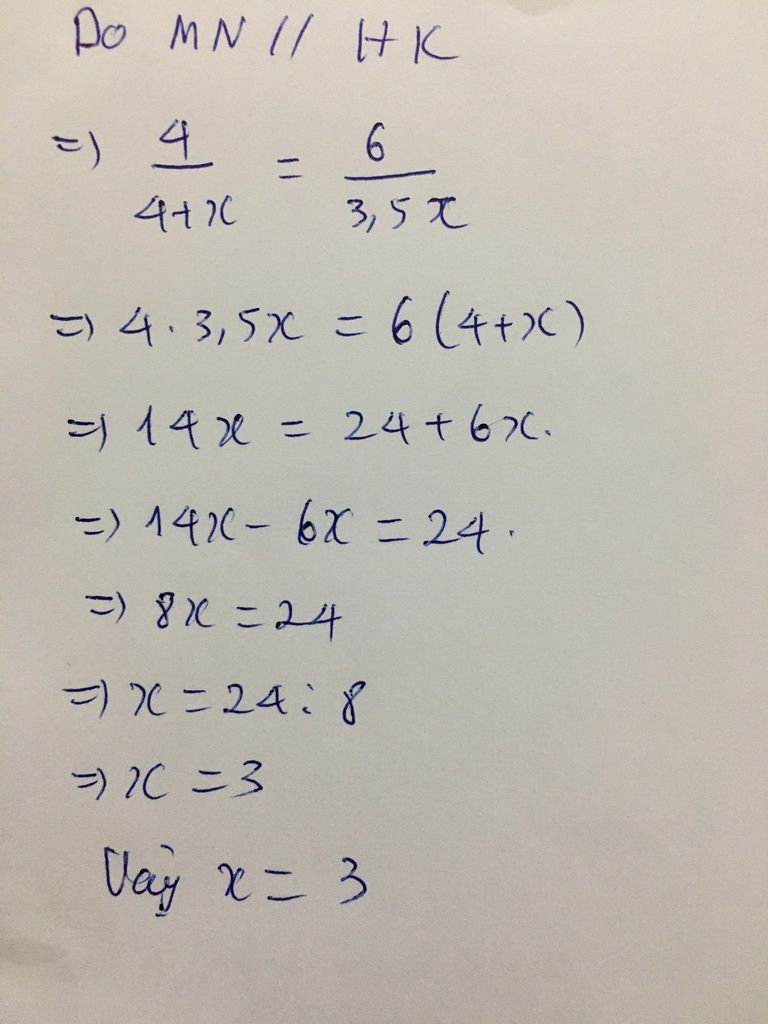 Do MN // HK
=> 4/(4+x) = 6/(3,5x)
=> 4 . 3,5x = 6(4+x)
=> 14x = 24 + 6x.
=> 14x - 6x = 24.
=> 8x = 24
=> x = 24 : 8
=> x = 3
Vậy x = 3